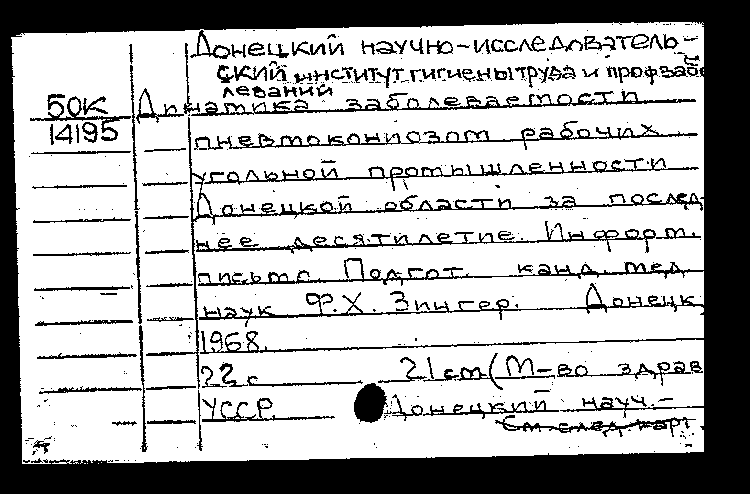 Донецкий научно-исследователь-
ский институт гигиены труда и профзабо
леваний
50К Динамика заболеваемости
14195 пневмокониозом рабочих
угольной промышленности
Донецкой области за послед-
нее десятилетие. Информ.
письмо. Подгот. канд. мед.
наук Ф.Х. Зингер. Донецк,
1968.
22 с 21 cm (М-во здрав
УССР. Донецкий науч.-
См. след. карт.